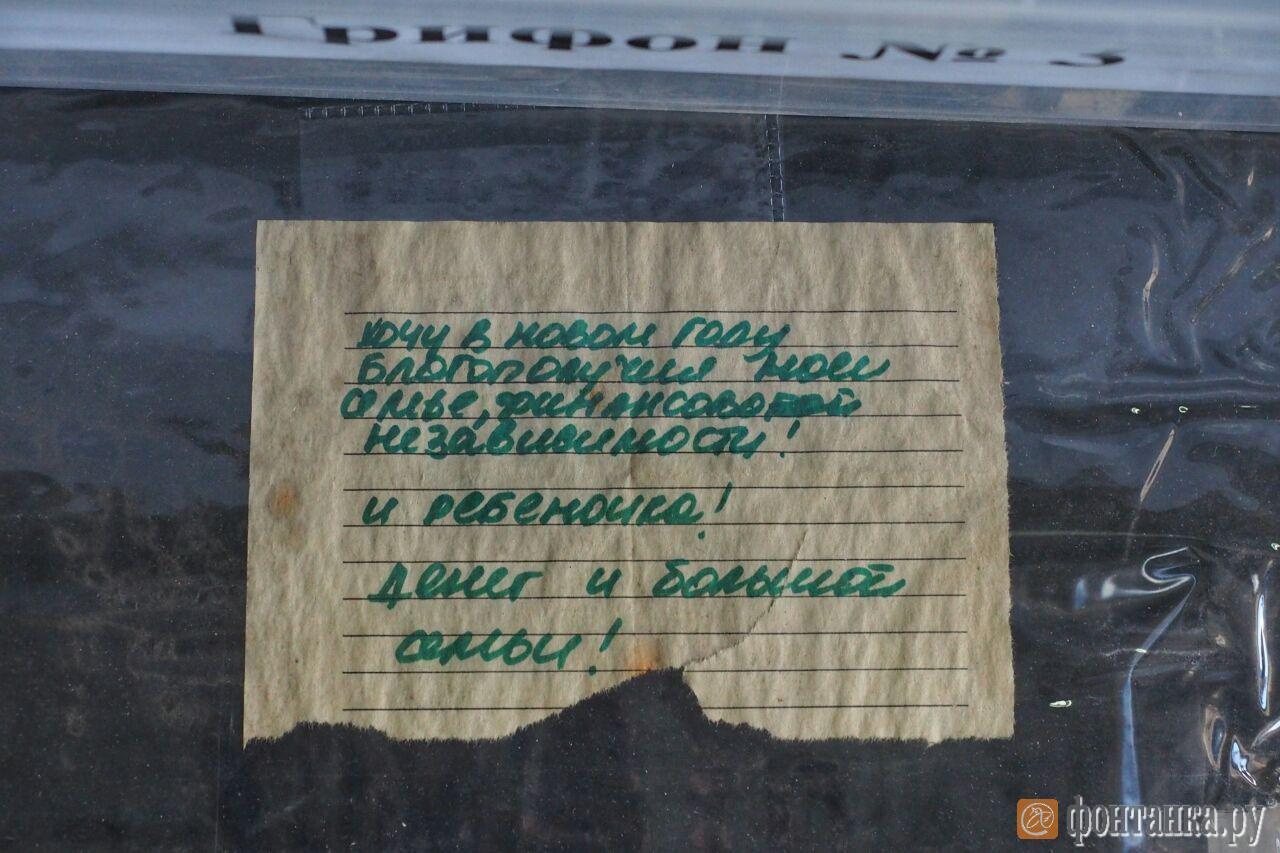 Грифон № 3
хочу в новом году
благополучия моей
семье, финансовой
независимости!
и ребеночка!
Денег и большой
семьи!
фонтанка.ру